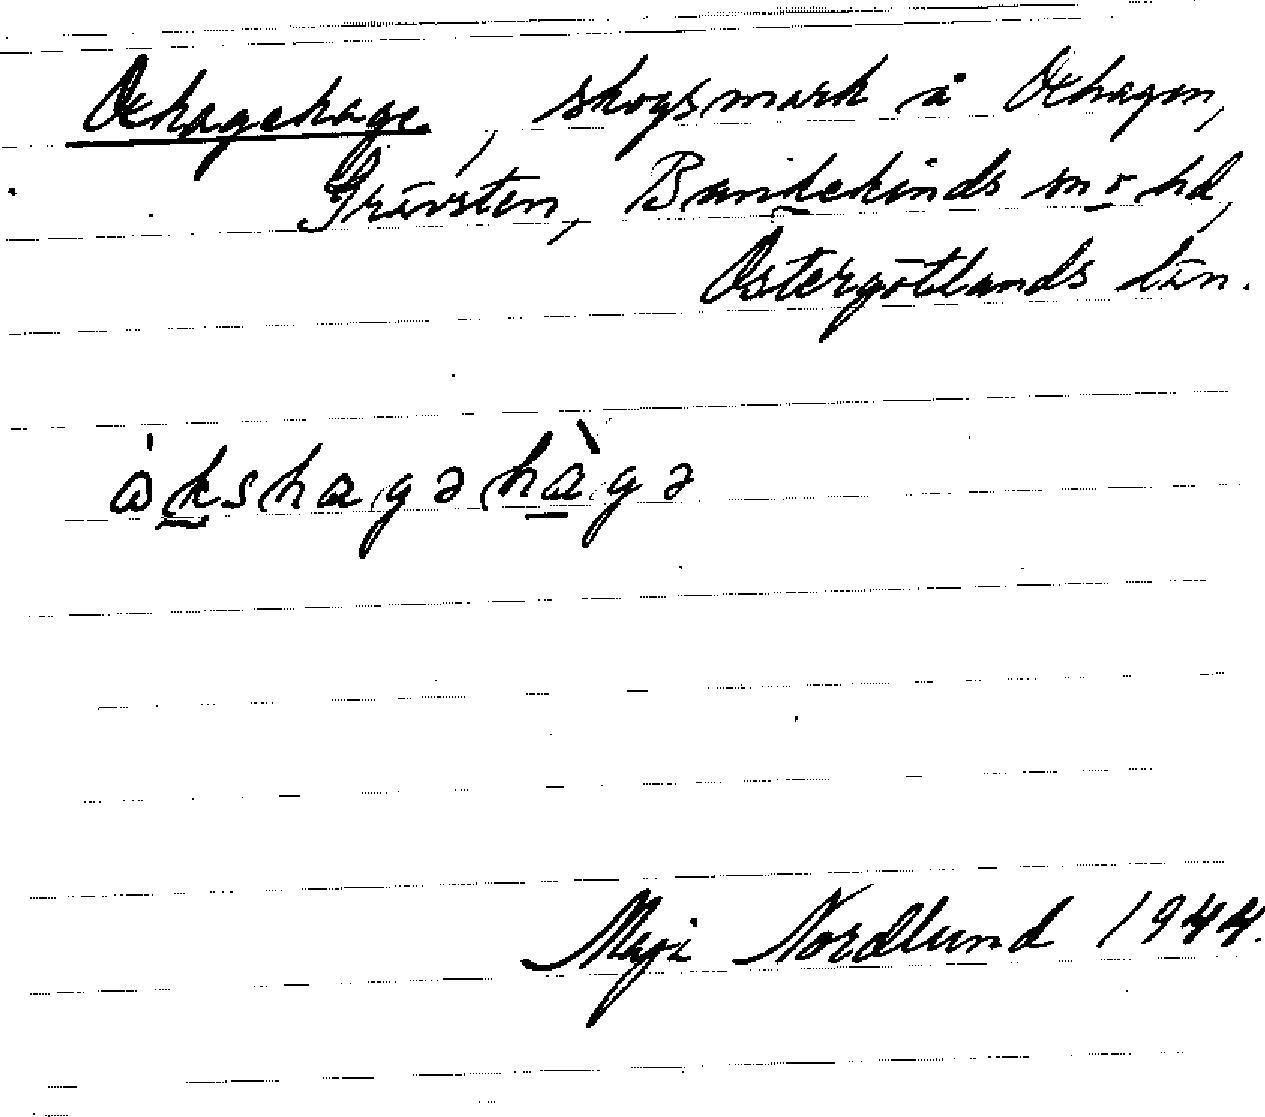 Oxhagehage, skogsmark å Oxhagen,
Grävsten, Bankekinds sn o hd,
Östergötlands län.
åkshagəhàgə
Maji Nordlund 1944.